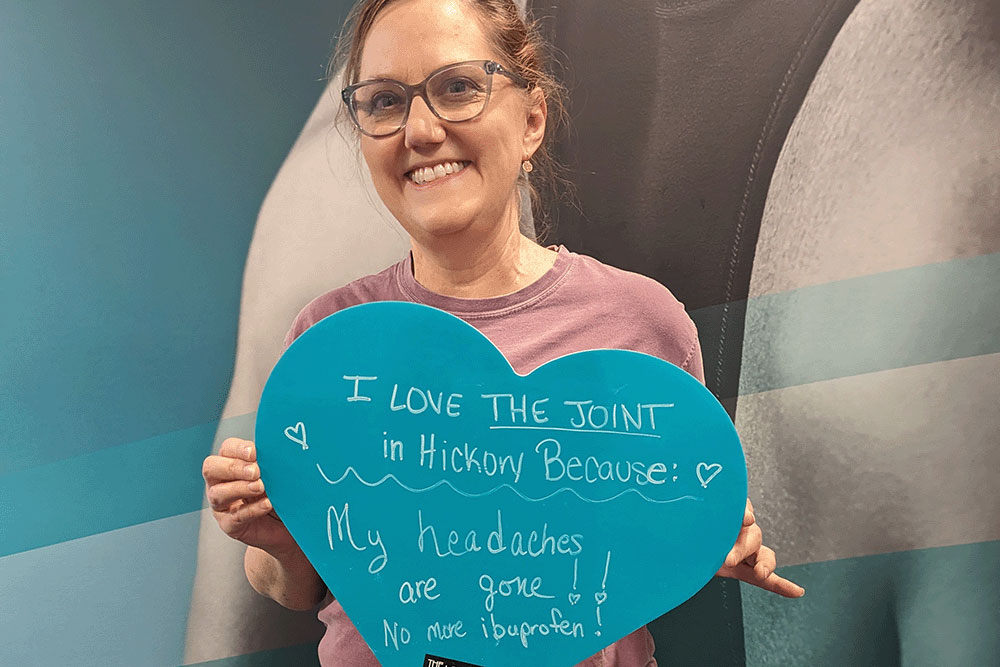 I LOVE THE JOINT
in Hickory Because:
My headaches
are gone!!
No more ibuprofen!